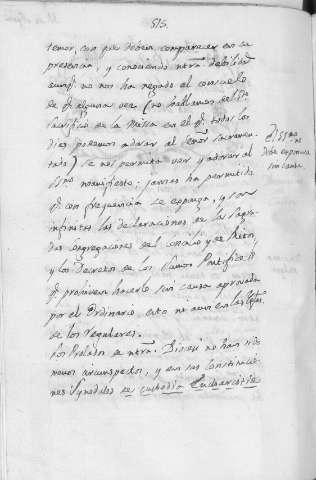 515.
temor, con que deben comparecer en su
presencia, y conociendo ntrã. debilidad
aunq̃. no nos ha negado el consuelo
de q̃. alguna vez (no hablamos del Sto.
Sacrificio de la Missa en el q̃. todos los
dias podemos adorar al Señor Sacramen-
tado) se nos permita ver, y adorar al
SSmo. manifiesto: jamas ha permitido
q̃. con frequencia se exponga, y son
infinitas las declaraciones de las Sagra-
das congregaciones del concilio, y de Ritos,
y los Decretos de los Sumos Pontifices
q̃. prohiven hacerlo sin causa aprovada
por el Ordinario, esto ni aun en las Igles.
de los Regulares.
Los Prelados de ntrã. Diocesi no han sido
menos circunspectos, y en sus Constitucio-
nes Synodales de custodia Eucharistiæ
El SSmo. no
debe exponerse
sin causa.